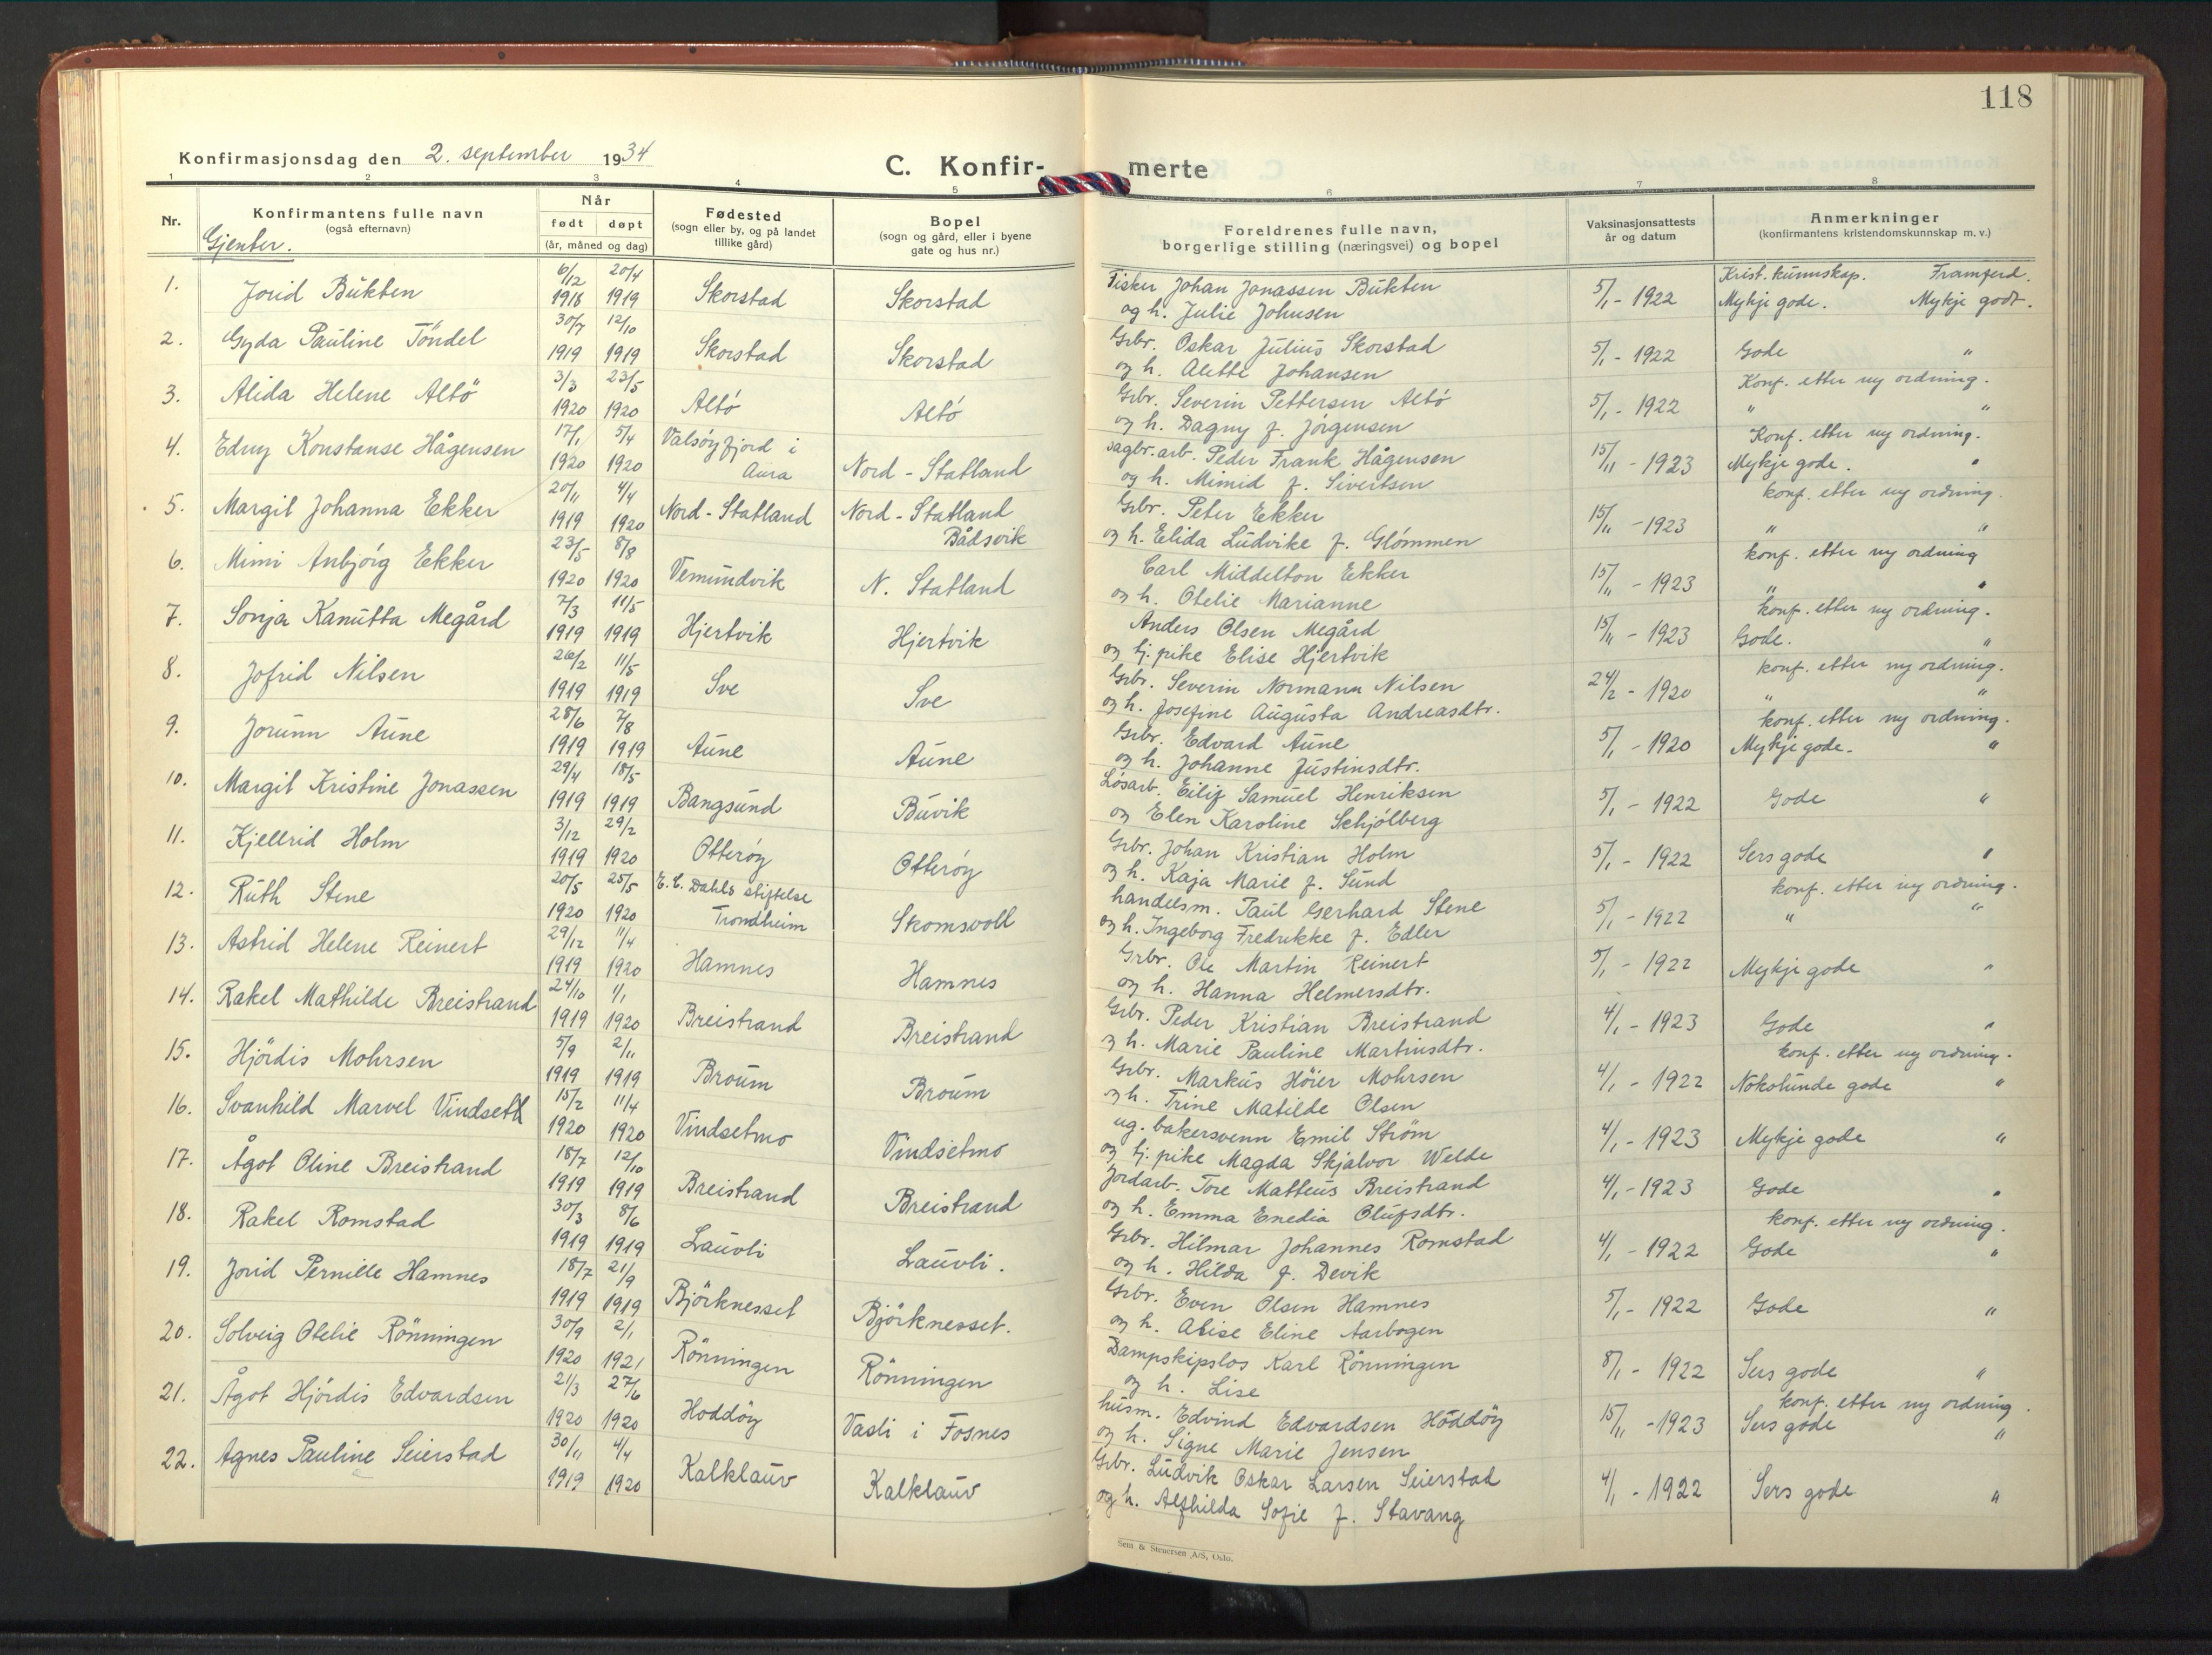 118
Konfirmasjonsdag den 2. september 1934
C. Konfir-merte
1 2 3 4 5 6 7 8
Nr.
Konfirmantens fulle navn
(også efternavn)
Gjenter.
Når
født døpt
(år, måned og dag)
Fødested
(sogn eller by, og på landet
tillike gård)
Bopel
(sogn og gård, eller i byene
gate og hus nr.)
Foreldrenes fulle navn,
borgerlige stilling (næringsvei) og bopel
Vaksinasjonsattests
år og datum
Anmerkninger
(konfirmantens kristendomskunnskap m. v.)
Krist. kunnskap. Framferd.
1. Jorid Bukten 6/12 1918 20/4 1919 Skorstad Skorstad Fisker Johan Jonassen Bukten 5/1 - 1922 Mykje gode. Mykje godt.
og h. Julie Johnsen
2. Gyda Pauline Töndel 30/7 1919 12/10 1919 Skorstad Skorstad Grbr. Oskar Julius Skorstad 5/1 - 1922 Gode "
og h. Alette Johansen
Konf. etter ny ordning.
3. Alida Helene Altö 3/3 1920 23/5 1920 Altö Altö Grbr. Severin Pettersen Altö 5/1 - 1922 " "
og h. Dagny f. Jörgensen
Konf. etter ny ordning.
4. Edny Konstanse Hågensen 17/1 1920 5/4 1920 Valsöyfjord i Aura Nord-Statland Sagbr. arb. Peder Frank Hågensen 15/11 - 1923 Mykje gode. "
og h. Mimid f. Sivertsen
konf. etter ny ordning.
5. Margit Johanna Ekker 20/11 1919 4/4 1920 Nord-Statland Nord-Statland Bådsvik Grbr. Peter Ekker 15/11 - 1923 " "
og h. Elida Ludvike f. Glömmen
konf. etter ny ordning
6. Mimi Anbjörg Ekker 23/5 1920 8/8 1920 Vemundvik N. Statland Carl Middelton Ekker 15/11 - 1923 " "
og h. Otelie Marianne
konf. etter ny ordning.
7. Sonja Kanutta Megård 7/3 1919 11/5 1919 Hjertvik Hjertvik Anders Olsen Megård 15/11 - 1923 Gode. "
og tj. pike Elise Hjertvik
konf. etter ny ordning.
8. Jofrid Nilsen 26/2 1919 11/5 1919 Sve Sve Grbr. Severin Normann Nilsen 24/2 - 1920 " "
og h. Josefine Augusta Andreasdtr.
konf. etter ny ordning.
9. Jorunn Aune 28/6 1919 7/8 1919 Aune Aune Grbr. Edvard Aune 5/1 - 1920 Mykje gode. "
og h. Johanne Justinsdtr.
10. Margit Kristine Jonassen 29/4 1919 18/5 1919 Bangsund Buvik Lösarb. Eilif Samuel Henriksen 5/1 - 1922 Gode "
og Elen Karoline Schjölberg
11. Kjellrid Holm 3/12 1919 29/2 1920 Otteröy Otteröy Grbr. Johan Kristian Holm 5/1 - 1922 Sers gode "
og h. Kaja Marie f. Sund
konf. etter ny ordning.
12. Ruth Stene 20/5 1920 25/5 1920 E. C. Dahls stiftelse Trondheim Skomsvoll handelsm. Paul Gerhard Stene 5/1 - 1922 " "
og h. Ingeborg Fredrikke f. Edler
13. Astrid Helene Reinert 29/12 1919 11/4 1920 Hamnes Hamnes Grbr. Ole Martin Reinert 5/1 - 1922 Mykje gode "
og h. Hanna Helmersdtr.
14. Rakel Mathilde Breistrand 24/10 1919 1/1 1920 Breistrand Breistrand Grbr. Peder Kristian Breistrand 4/1 - 1923 Gode "
og h. Marie Pauline Martinsdtr.
konf. etter ny ordning.
15. Hjördis Mohrsen 5/9 1919 2/11 1919 Broum Broum Grbr. Markus Höier Mohrsen 4/1 - 1922 Nokolunde gode "
og h. Trine Matilde Olsen
16. Svanhild Marvel Vindseth 15/2 1920 11/4 1920 Vindsetmo Vindsetmo ug. bakersvenn Emil Ström 4/1 - 1923 Mykje gode "
og tj. pike Magda Skjalvor Welde
17. Ågot Oline Breistrand 18/7 1919 12/10 1919 Breistrand Breistrand Jordarb. Tore Matteus Breistrand 4/1 - 1923 Gode "
og h. Emma Enedia Olufsdtr.
konf. etter ny ordning.
18. Rakel Romstad 30/3 1919 8/6 1919 Lauvli Lauvli. Grbr. Hilmar Johannes Romstad 4/1 - 1922 Gode "
og h. Hilda f. Devik
19. Jorid Pernille Hamnes 18/7 1919 21/9 1919 Björknesset Björknesset. Grbr. Even Olsen Hamnes 5/1 - 1922 Gode "
og h. Alise Eline Aarbogen
20. Solveig Otelie Rönningen 30/9 1920 2/1 1921 Rönningen Rönningen Dampskipslos Karl Rönningen 8/1 - 1922 Sers gode "
og h. Lise
konf. etter ny ordning.
21. Ågot Hjördis Edvardsen 21/3 1920 27/6 1920 Hoddöy Vasli i Fosnes husm. Edvind Edvardsen Hoddöy 15/11 - 1923 Sers gode "
og h. Signe Marie Jensen
22. Agnes Pauline Seierstad 30/11 1919 4/4 1920 Kalklauv Kalklauv Grbr. Ludvik Oskar Larsen Seierstad 4/1 - 1922 Sers gode "
og h. Alfhilda Sofie f. Stavang
Sem & Stenersen A/S, Oslo.